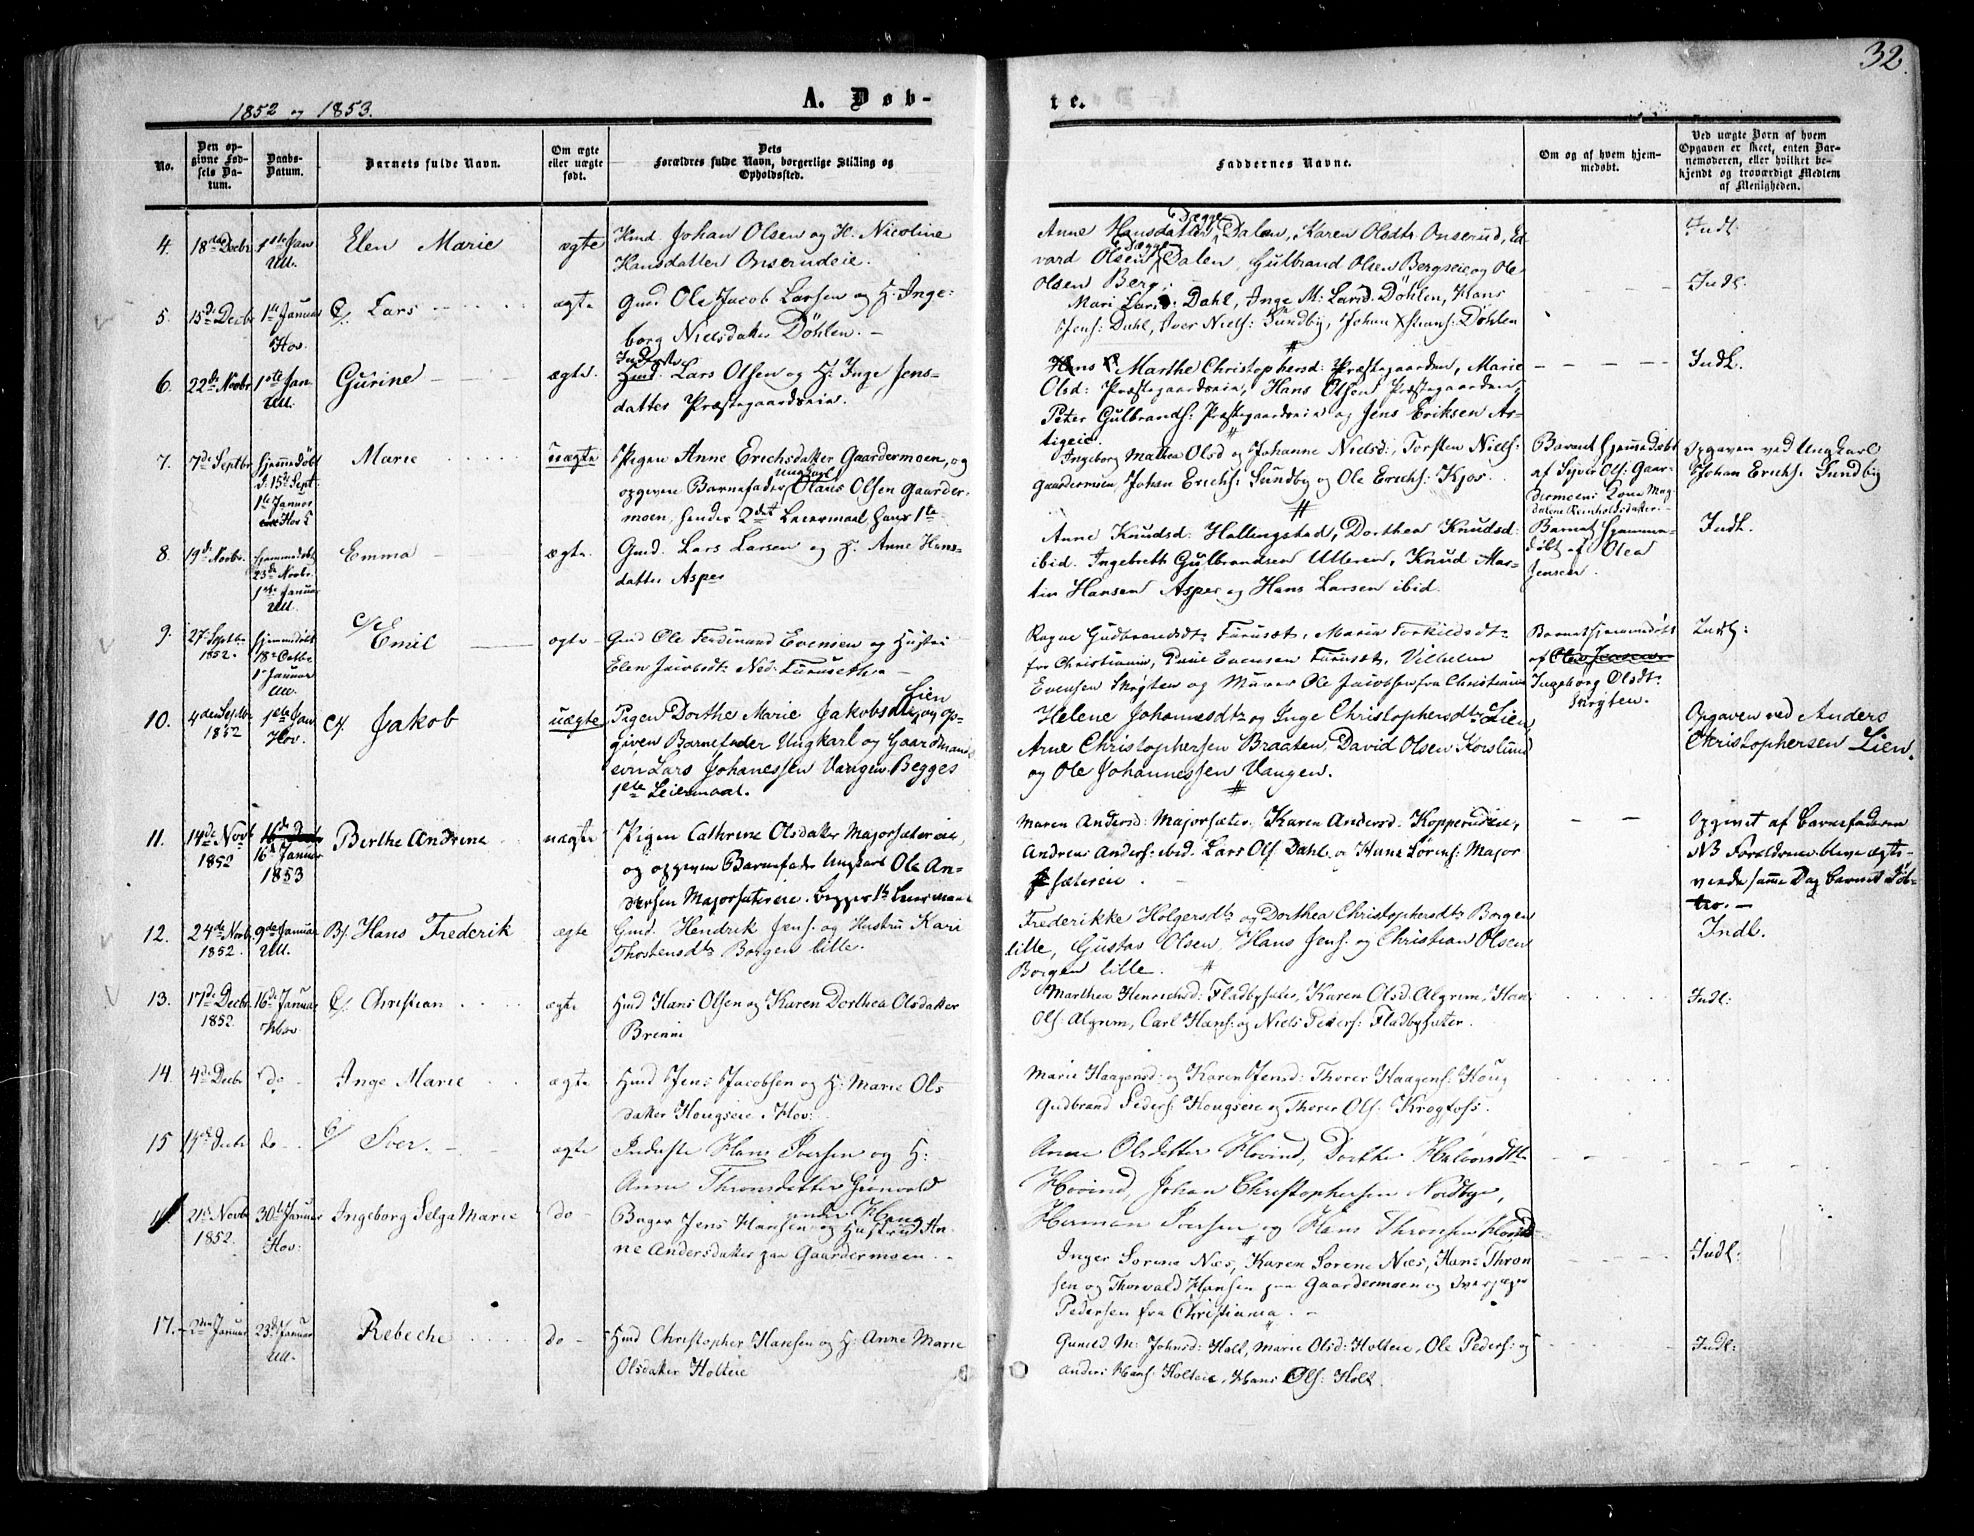 32.
1852 og 1853.
A. Døb-
te.
No.
Den op-
givne Fød-
sels Da-
tum.
Daabs-
Datum.
Barnets fulde Navn.
Om ægte
eller uægte
født.
Dets
Forældres fulde Navn, borgerlige Stilling og
Opholdssted.
Faddernes Navne.
Om og af hvem hjem-
medøbt.
Ved uægte Born af hvem
Opgaven er skeet, enten Bar-
nemoderen, eller hvilket be-
kjendt og troværdigt Medlem
af Menigheden.
4.
18de Decbr
1ste Jan
Ull.
Elen Marie
ægte
Hmd. Johan Olsen og H. Nicoline
Hansdatter Onserudeie.
Anne Hansdatter, Dalen, Karen Olsdtr Onserud, Ed
Begge
vard Olsen Dalen, Gulbrand Olsen Bergseie og Ole
Begge
Olsen Berg.
Indl:
5.
15de Decbr
1ste Januar
Hov.
Lars
ægte
Gmd Ole Jacob Larsen og H. Inge:
borg Nielsdatter Döhlen.
Mari Larsd: Dahl, Inge M: Larsd. Döhlen, Hans
Jens: Dahl, Iver Niels: Sundby, Johan Xstians: Döhlen
Indl:
6.
22de Novbr
1ste Jan
Ull.
Gurine
ægte.
Inderste
Hmd. Lars Olsen og H. Inge Jens-
datter Præstegaardseie.
Marthe Christophersd: Præstegaarden, Marie
Olsd: Præstegaardseie, Hans Olsen Præstegaarden,
Peter Gulbrands: Præstegaardseie og Jens Eriksen As-
Indl.
7.
7de Septbr
hjemmedöbt
d. 15de Sept
1ste Januar
Hov
Marie
uægte
Pigen Anne Erichsdatter Gaardermoen, og
opgiven Barnefader Ungkarl Olaus Olsen Gaarder-
moen, hendes 2det Leiermaal hans 1ste
Ingeborg Mathea Olsd og Johanne Nielsd:, Torsten Niels:
Gaardermoen, Johan Erichs: Sundby og Ole Erichs: Kjos.
Barnet hjemmedøbt
af Syver Ols: Gaar-
dermoens Kone Mag-
dalene Reinholdsdatter.
Opgaven ved Ungkarl
Johan Erichs: Sundby
8.
19de Novbr.
hjemmedöbt
23de Novbr.
1ste Januar
Ull.
Emma
ægte
Gmd. Lars Larsen og H. Anne Hans-
datter Asper
Anne Knudsd: Hallingstad, Dorthea Knudsd:
ibid. Ingebreth Gulbrandsen Ulleren, Knud Mar-
tin Hansen Asper og Hans Larsen ibid.
Barnet hjemme-
døbt af Olea
Jensen.
Indl.
9.
27. Septbr
1852.
hjemmedöbt
18de Octbr
1ste Januar
Ull.
Emil
ægte
Gmd Ole Ferdinand Evensen og Hustru
Elen Jacobsdtr Ned: Furuseth.
Ragne Gudbrandsdtr Furuset, Maria Torkildsdtr
fra Christiania, Paul Evensen Furuset, Vilhelm
Evensen Skrøten og Murer Ole Jacobsen fra Christiania
Barnet hjemmedöbt
af Olea Jensen
Ingeborg Olsdtr
Skrøten.
Indl:
10.
4de Septbr
1852
1ste Jan
Hov.
Jakob
uægte
Pigen Dorthe Marie Jakobsdtr Lien og op-
given Barnefader Ungkarl og Gaardmands
søn Lars Johannessen Vangen. Begges
1ste Leiermaal.
Helene Johannesdtr og Inge Christophersdtr Lien,
Arne Christophersen Braaten, David Olsen Korslund
og Ole Johannessen Vangen.
Opgaven ved Anders
Christophersen Lien.
11.
14de Novb
1852
16de Januar
1853
Berthe Andrine
uægte
Pigen Cathrine Olsdatter Majorsætereie,
og opgiven Barnefader Ungkarl Ole An-
dersen Majorsætereie. begges 1ste Leiermaal
Maren Andersd: Majorsæter, Karen Andersd: Kopperudeie,
Andreas Anders: ibid. Lars Ols: Dahl og Hans Sörens: Major
sætereie.
Opgivet af Barnefaderen
NB Forældrene bleve ægte-
viede samme Dag barnet döb-
tes.
12.
24de Novbr
1852.
9de Januar
Ull.
Hans Frederik
ægte
Gmd. Hendrik Jens: og Hustru Kari
Thostensdtr Borgen lille.
Frederikke Holgersdtr og Dorthea Christophersdtr Borgen
lille, Gustav Olsen, Hans Jens: og Christian Olsen
Borgen lille.
Indl.
13.
17de Decbr
1852.
16de Januar
Hov
Christian
ægte
Hmd Hans Olsen og Karen Dorthea Olsdatter
Brenni
Marthea Henrichsd: Fladbysæter, Karen Olsd. Algrim, Hans
Ols: Algrim, Carl Hans: og Niels Peders: Fladbysæter.
Indl:
14.
4de Decbr
do
Inge Marie
ægte
Hmd Jens Jacobsen og H: Marie Ols
datter Hougseie i Hov:
Marie Haagensd: og Karen Jensd: Thorer Haagens: Houg
Gudbrand Peders: Hougseie og Thorer Ols: Krogfoss.
15
do
Iver.
ægte
Inderste Hans Iversen og H:
Anne Thronsdatter Grønvold
under Houg
Anne Olsdatter Hovind, Dorthe Halvorsdtr
Hovind, Johan Christophersen Nordbye,
Herman Iversen og Hans Thronsen Hovind
21de Novbr
1852.
30te Januar
Hov:
Ingeborg Helga Marie
do
Bager Jens Hansen og Hustru An-
ne Andersdatter paa Gaardermoen.
Inger Sorene Næs, Karen Sorene Næs, Hans Thron
sen og Thorvald Hansen paa Gaardermoen og
Pedersen fra Christiania.
Indl:
17.
2den Januar
23de Januar
Ull.
Rebeche
do
Hmd Christopher Hansen og H. Anne Marie
Olsdatter Holteie
Gunild M: Johnsd: Holt, Marie Olsd: Holteie, Ole Peders: og
Anders Hans: Holteie, Hans Ols: Holt.
Indl: